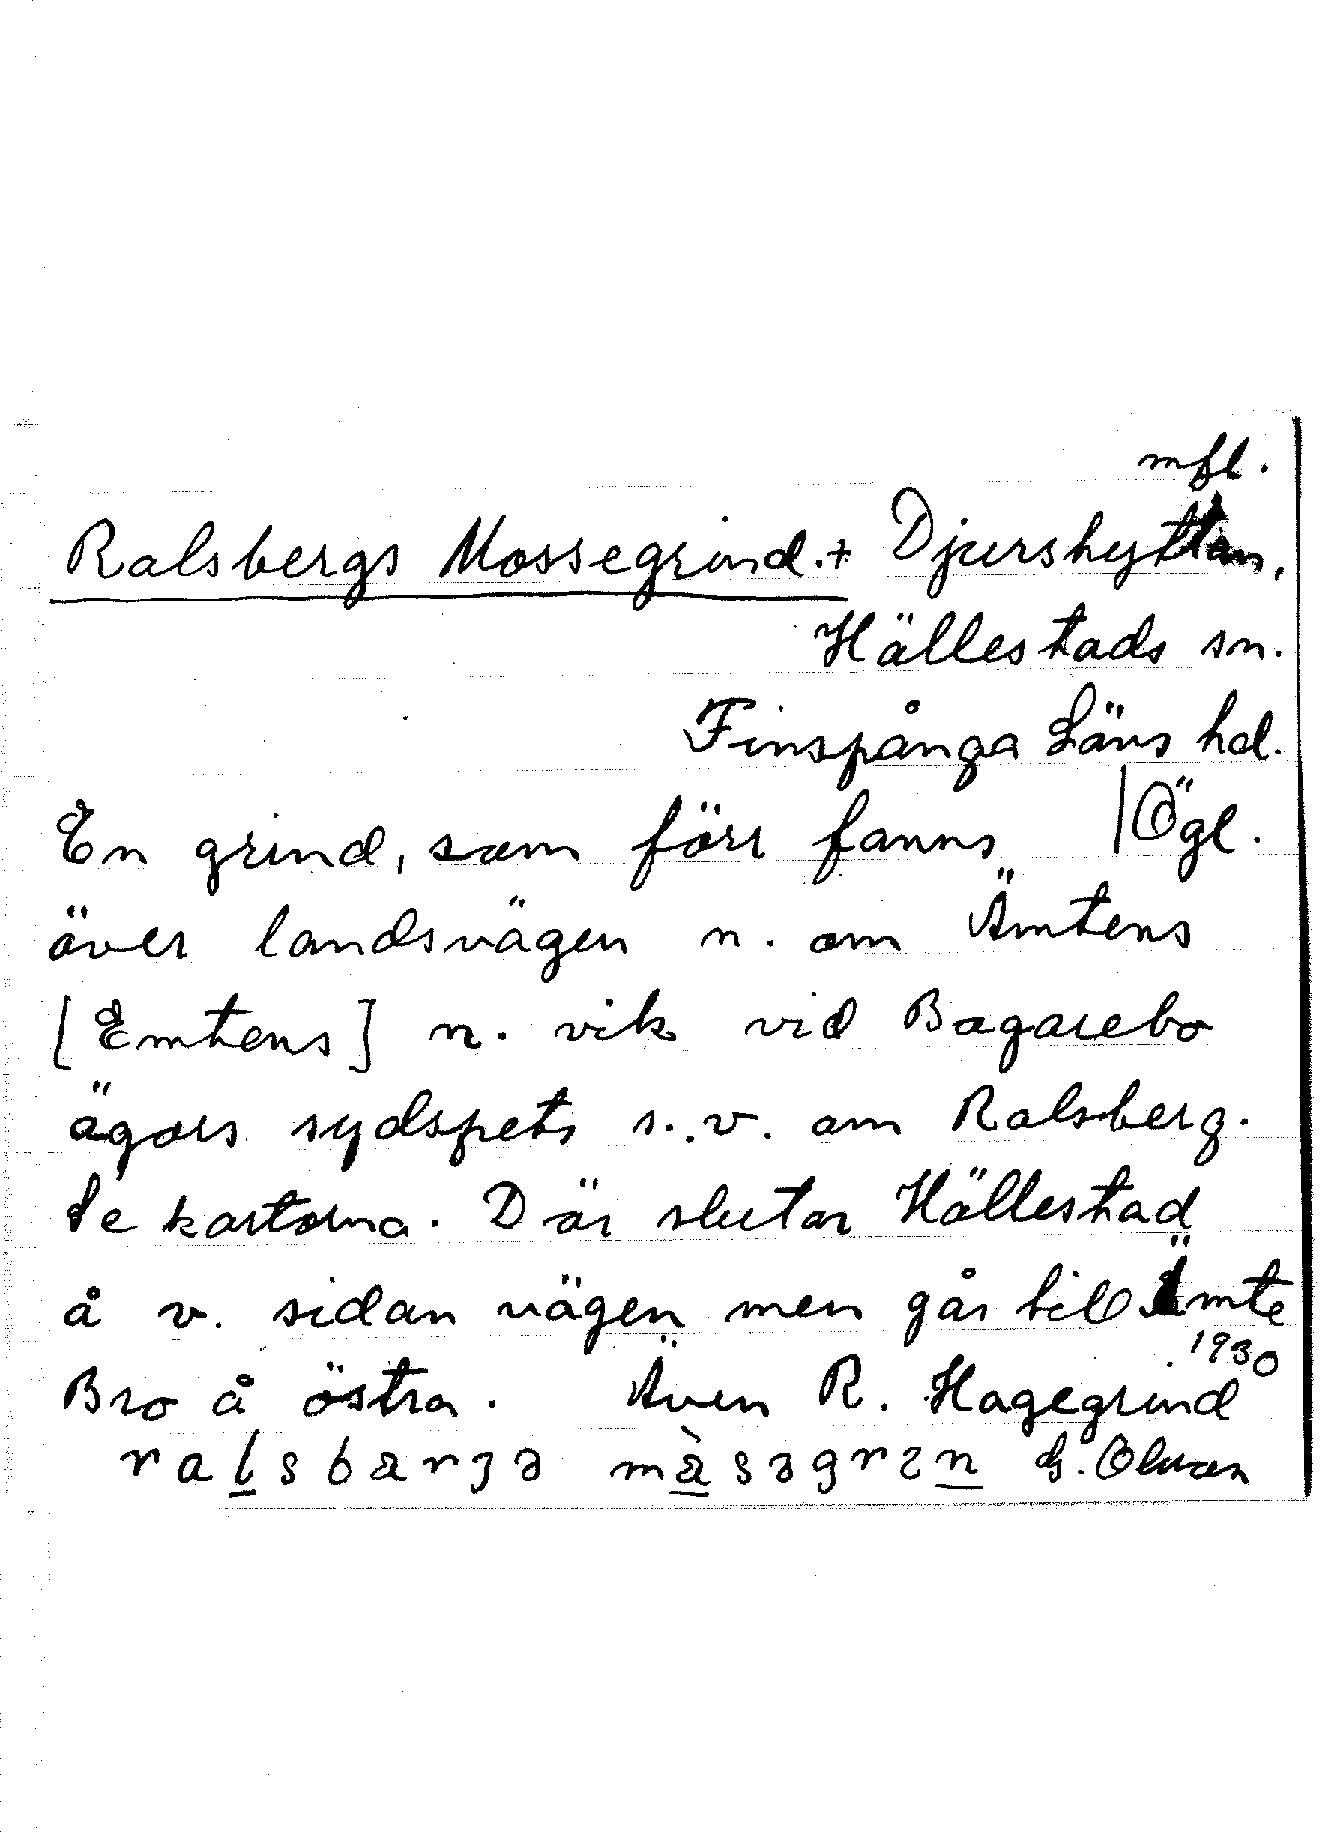 mfl.
Ralsbergs Mossegrind.+ Djurshyttan,
Hällestads sn.
Finspånga Läns hd.
En grind, som förr fanns | Ögl.
över landsvägen n. om Ämtens
[Emtens] n. vik vid Bagarebo
ägors sydspets s.v. om Ralsberg.
Se kartorna. Där slutar Hällestad
å v. sidan vägen men går till Ämte
1930
Bro å östra. Även R. Hagegrind